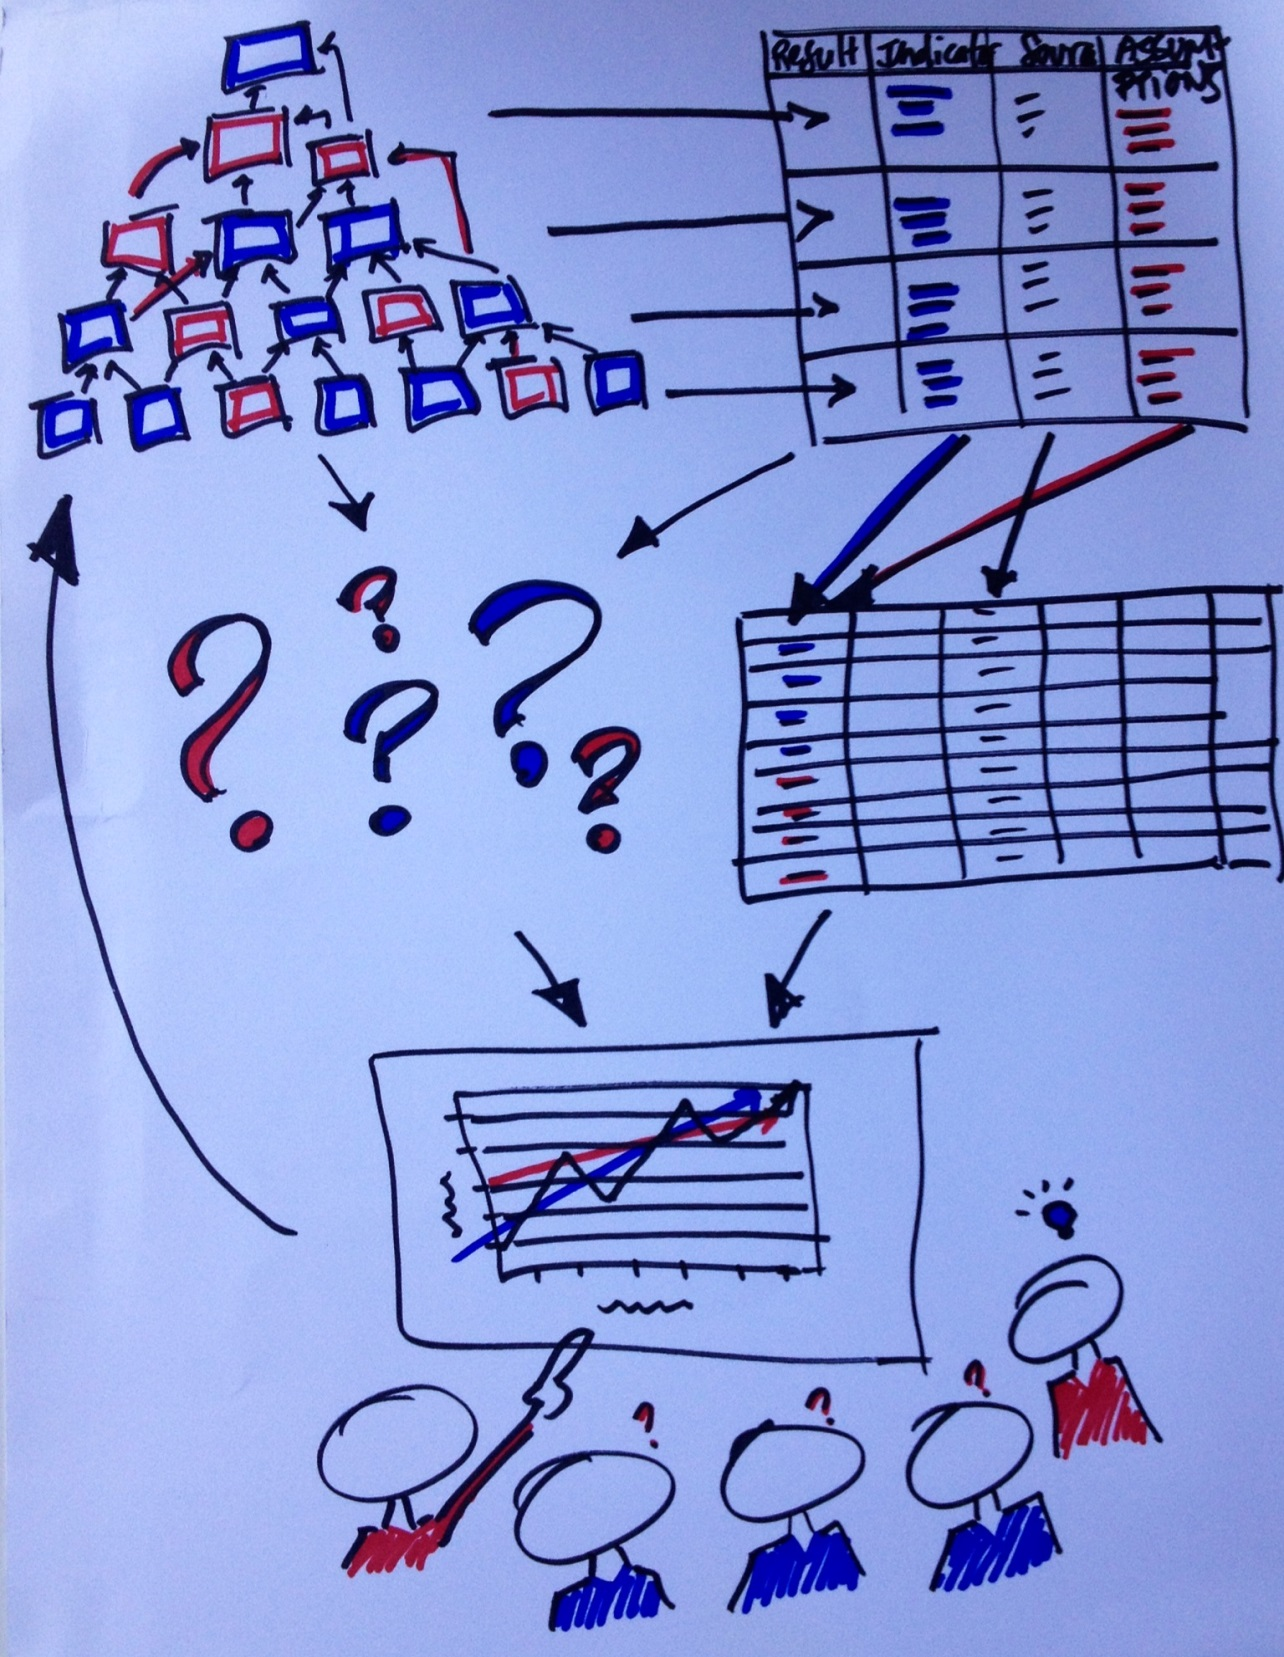 Result Indicator Source ASSUM
PTIONS
?
?
?
?
?
?
?
?